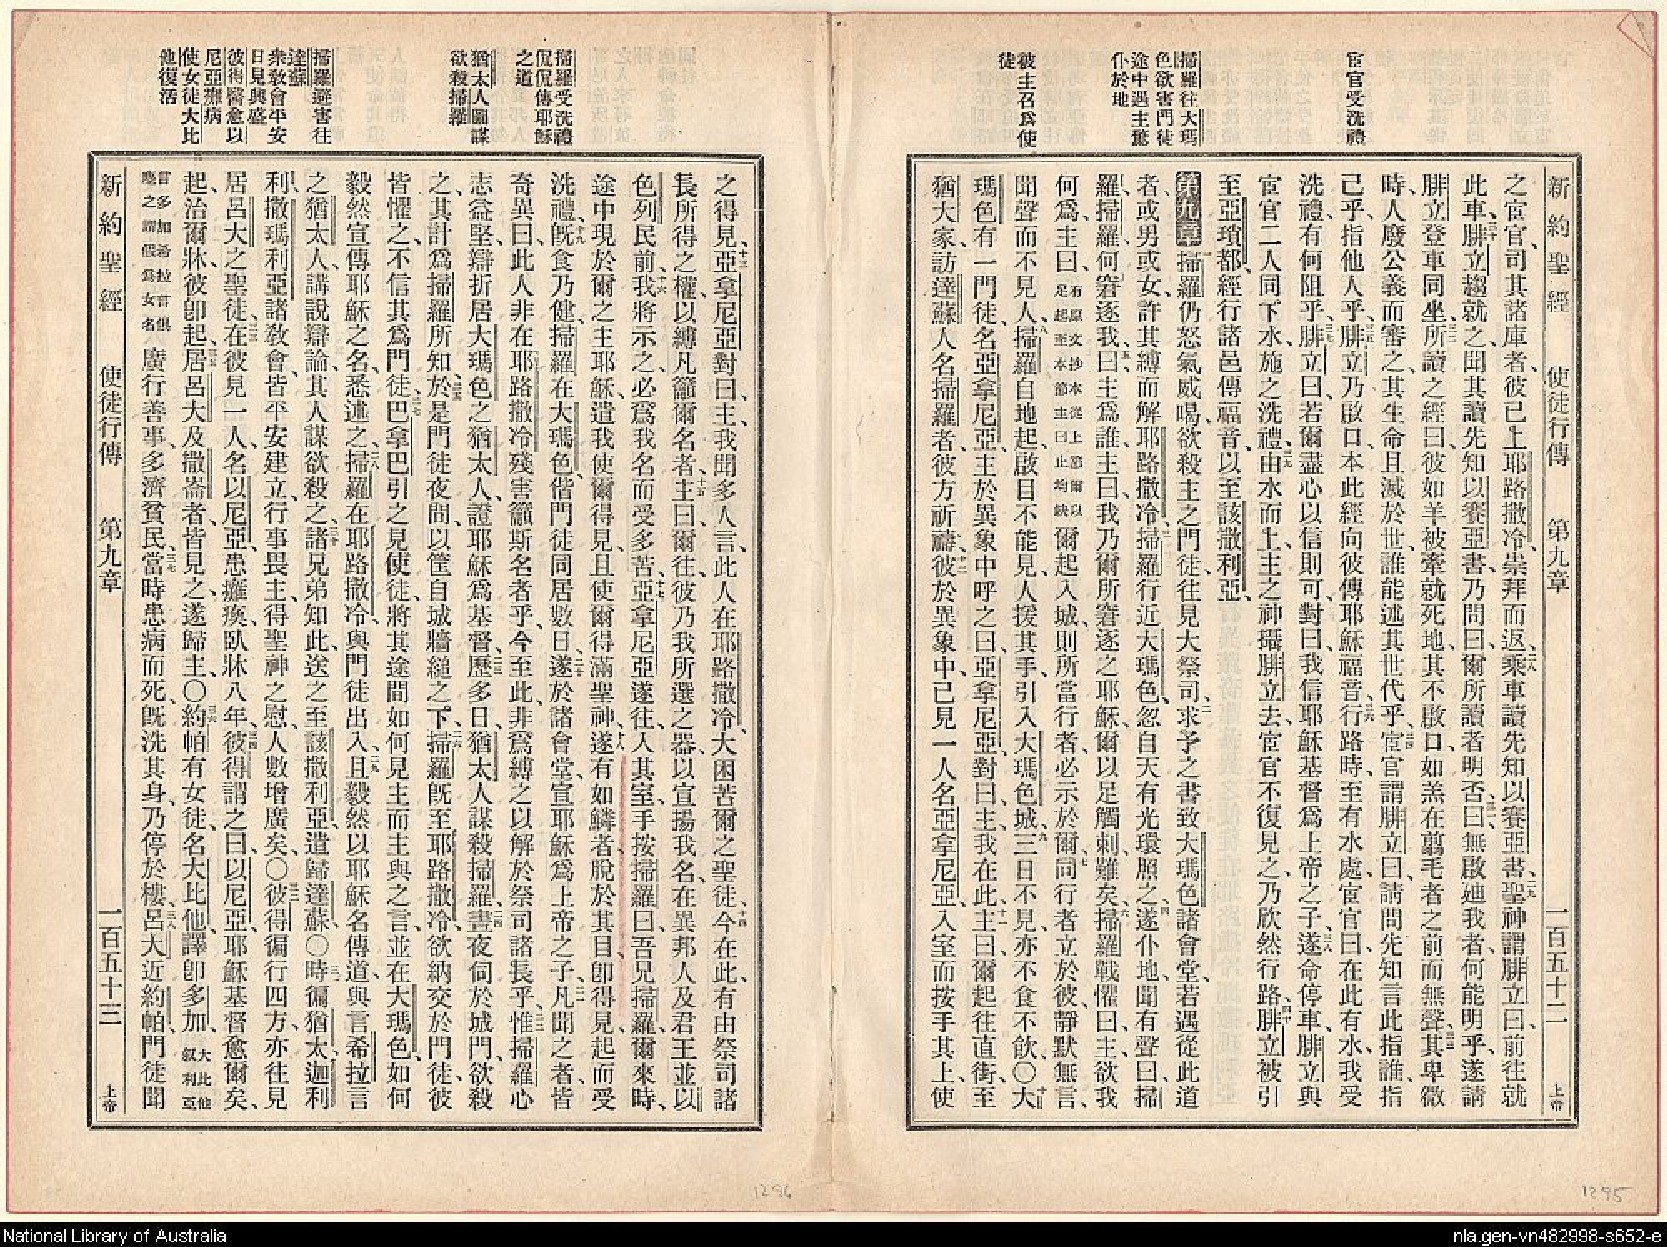 宦官受洗禮
掃羅往大瑪
色欲害門徒
途中遇主驚
仆於地
彼主召爲使
徒
新約聖經　使徒行傳　第九章　一百五十二　上帝
之宦官、司其諸庫者、彼已上耶路撒冷崇拜而返、乘車讀先知以賽亞書、聖神謂腓立曰、前往就
此車、腓立趨就之、聞其讀先知以賽亞書、乃問曰、爾所讀者明否、曰、無啟廸我者、何能明乎、遂請
腓立登車同坐、所讀之經曰、彼如羊被牽就死地、其不啟口、如羔在翦毛者之前而無聲、其卑微
時、人廢公義而審之、其生命且滅於世、誰能述其世代乎、宦官謂腓立曰、請問先知言此指誰、指
己乎、指他人乎、腓立乃啟口、本此經向彼傳耶穌福音、行路時、至有水處、宦官曰、在此有水、我受
洗禮、有何阻乎、腓立曰、若爾盡心以信則可、對曰、我信耶穌基督爲上帝之子、遂命停車、腓立與
宦官二人同下水、施之洗禮、由水而上、主之神攝腓立去、宦官不復見之、乃欣然行路、腓立被引
至亞瑣都、經行諸邑傳福音、以至該撒利亞、
第九章　掃羅仍怒氣威喝、欲殺主之門徒、往見大祭司、求予之書、致大瑪色諸會堂、若遇從此道
者、或男或女、許其縛而解耶路撒冷、掃羅行近大瑪色、忽自天有光環照之、遂仆地、聞有聲曰、掃
羅、掃羅、何窘逐我、曰、主爲誰、主曰、我乃爾所窘逐之耶穌、爾以足觸刺難矣、掃羅戰懼曰、主欲我
何爲、主曰、有原文抄本從上節爾以足起至本節主曰止均缺爾起入城、則所當行者、必示於爾、同行者立於彼、靜默無言、
聞聲而不見人、掃羅自地起、啟目不能見、人援其手、引入大瑪色城、三日不見、亦不食不飲、○大
瑪色有一門徒、名亞拿尼亞、主於異象中呼之曰、亞拿尼亞、對曰、主、我在此、主曰、爾起往直街、至
猶大家、訪達蘇人名掃羅者、彼方祈禱、彼於異象中、已見一人名亞拿尼亞、入室而按手其上、使
1295
掃羅受洗禮
侃侃傳耶穌
之道
猶太人圖謀
欲殺掃羅
掃羅避害往
達蘇
衆敎會平安
日見興盛
彼得醫愈以
尼亞癱病
使女徒大比
他復活
之得見、亞拿尼亞對曰、主、我聞多人言、此人在耶路撒冷、大困苦爾之聖徒、今在此、有由祭司諸
長所得之權、以縛凡籲爾名者、主曰、爾往、彼乃我所選之器、以宣揚我名在異邦人及君王、並以
色列民前、我將示之、必爲我名而受多苦、亞拿尼亞遂往、入其室、手按掃羅曰、吾兄掃羅、爾來時、
途中現於爾之主耶穌、遣我使爾得見、且使爾得滿聖神、遂有如鱗者脫於其目、卽得見、起而受
洗禮、旣食乃健、掃羅在大瑪色、偕門徒同居數日、遂於諸會堂、宣耶穌爲上帝之子、凡聞之者、皆
奇異曰、此人非在耶路撒冷、殘害籲斯名者乎、今至此、非爲縛之以解於祭司諸長乎、惟掃羅心
志益堅、辯折居大瑪色之猶太人、證耶穌爲基督、歷多日、猶太人謀殺掃羅、晝夜伺於城門、欲殺
之、其計爲掃羅所知、於是門徒夜間以筐自城牆縋之下、掃羅旣至耶路撒冷、欲納交於門徒、彼
皆懼之、不信其爲門徒、巴拿巴引之見使徒、將其途間如何見主、而主與之言、並在大瑪色、如何
毅然宣傳耶穌之名、悉述之、掃羅在耶路撒冷、與門徒出入、且毅然以耶穌名傳道、與言希拉言
之猶太人、講說辯論、其人謀欲殺之、諸兄弟知此、送之至該撒利亞、遣歸達蘇、○時徧猶太、迦利
利、撒瑪利亞諸敎會、皆平安建立、行事畏主、得聖神之慰、人數增廣矣、○彼得徧行四方、亦往見
居呂大之聖徒、在彼見一人名以尼亞、患癱瘓、臥牀八年、彼得謂之曰、以尼亞、耶穌基督愈爾矣、
起、治爾牀、彼卽起、居呂大及撒崙者皆見之、遂歸主、○約帕有女徒名大比他、譯卽多加、大比他叙利亞
言多加希拉言俱麞之謂假爲女名廣行善事、多濟貧民、當時患病而死、旣洗其身、乃停於樓、呂大近約帕、門徒聞
新約聖經　使徒行傳　第九章　一百五十三　上帝
1296
National Library of Australia
nla.gen-vn482998-s652-e